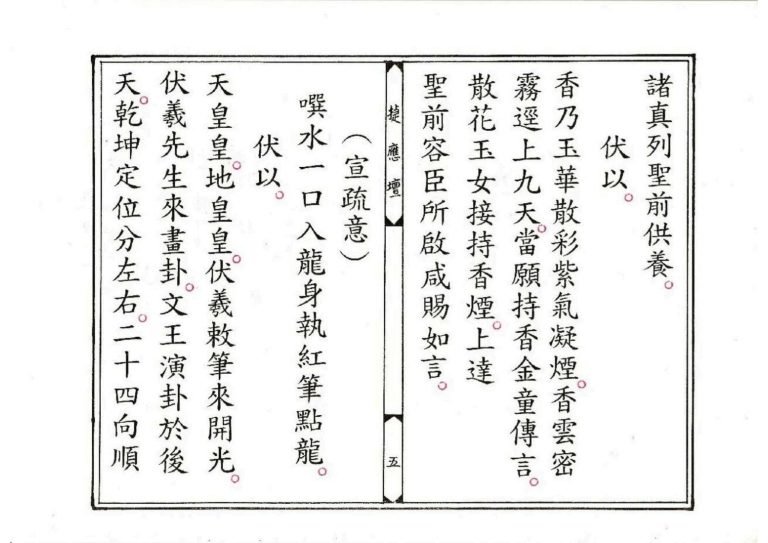 諸真列聖前供養。
伏以。
香乃玉華散彩紫氣凝煙。香雲密
霧逕上九天。當願持香金童傳言。
散花玉女接持香煙。上達
聖前容臣所啟咸賜如言。
捷應壇
五
（宣疏意）
噀水一口入龍身執紅筆點龍。
伏以。
天皇皇。地皇皇。伏羲敕筆來開光。
伏羲先生來畫卦。文王演卦於後
天。乾坤定位分左右。二十四向順